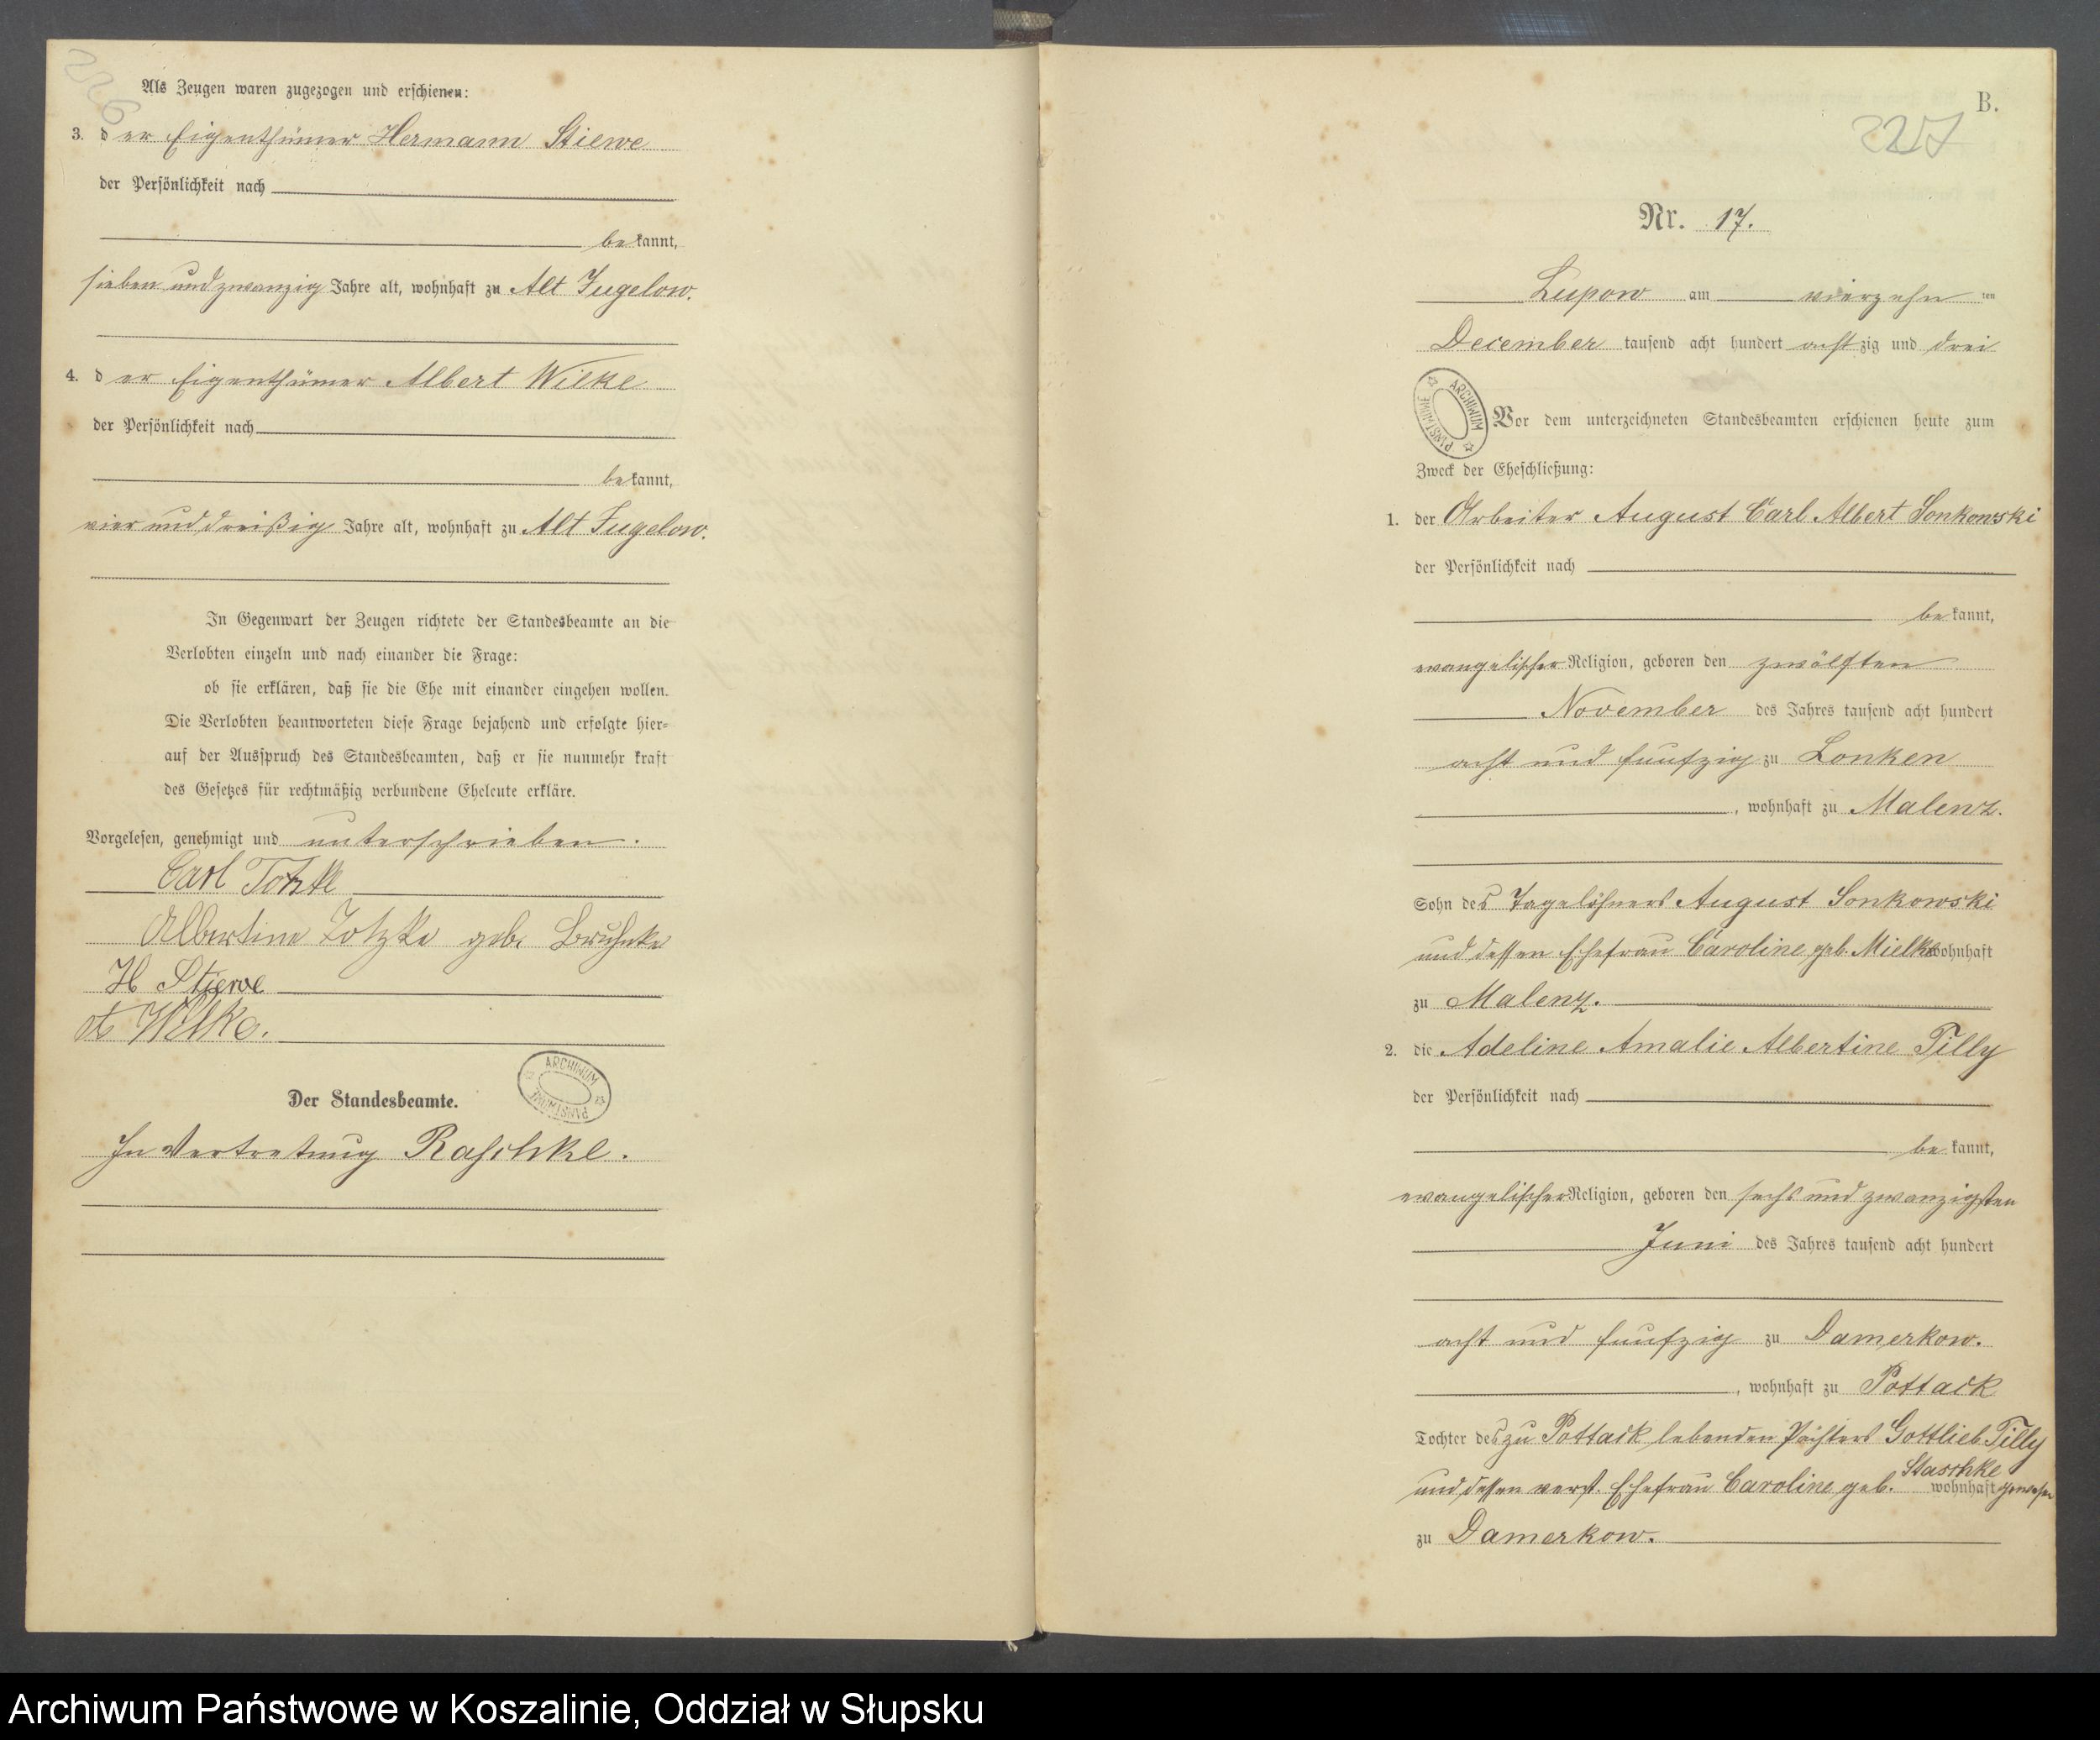 226
Als Zeugen waren zugezogen und erschienen:
3. der Eigenthümer Hermann Stiewe
der Persönlichkeit nach
bekannt,
sieben und zwanzig Jahre alt, wohnhaft zu Alt Jugelow.
4. der Eigenthümer Albert Wilke
der Persönlichkeit nach
bekannt,
vier und dreißig Jahre alt, wohnhaft zu Alt Jugelow.
In Gegenwart der Zeugen richtete der Standesbeamte an die
Verlobten einzeln und nach einander die Frage:
ob sie erklären, daß sie die Ehe mit einander eingehen wollen.
Die Verlobten beantworteten diese Frage bejahend und erfolgte hier=
auf der Ausspruch des Standesbeamten, daß er sie nunmehr kraft
des Gesetzes für rechtmäßig verbundene Eheleute erkläre.
Vorgelesen, genehmigt und unterschrieben.
Carl Totzke
Albertine Totzke geb. Bruhnke
H Stiewe
A Wilke.
ARCHIWUM PAŃSTWOWE
Der Standesbeamte.
In Vertretung Raschke.
B.
227
Nr. 17.
Lupow am vierzehn ten
December tausend acht hundert achtzig und drei
ARCHIWUM PAŃSTWOWE
Vor dem unterzeichneten Standesbeamten erschienen heute zum
Zweck der Eheschließung:
1. der Arbeiter August Carl Albert Sonkowski
der Persönlichkeit nach
bekannt,
evangelischer Religion, geboren den zwölften
November des Jahres tausend acht hundert
acht und funfzig zu Lonken
, wohnhaft zu Malenz.
Sohn des Tagelöhners August Sonkowski
und dessen Ehefrau Caroline geb. Mielke wohnhaft
zu Malenz.
2. die Adeline Amalie Albertine Tilly
der Persönlichkeit nach
bekannt,
evangelischer Religion, geboren den sechs und zwanzigsten
Juni des Jahres tausend acht hundert
acht und funfzig zu Damerkow.
, wohnhaft zu Pottack
Tochter des zu Pottack lebenden Pächters Gottlieb Tilly
und dessen verst. Ehefrau Caroline geb. Staschke wohnhaft gewesen
zu Damerkow.
Archiwum Państwowe w Koszalinie, Oddział w Słupsku